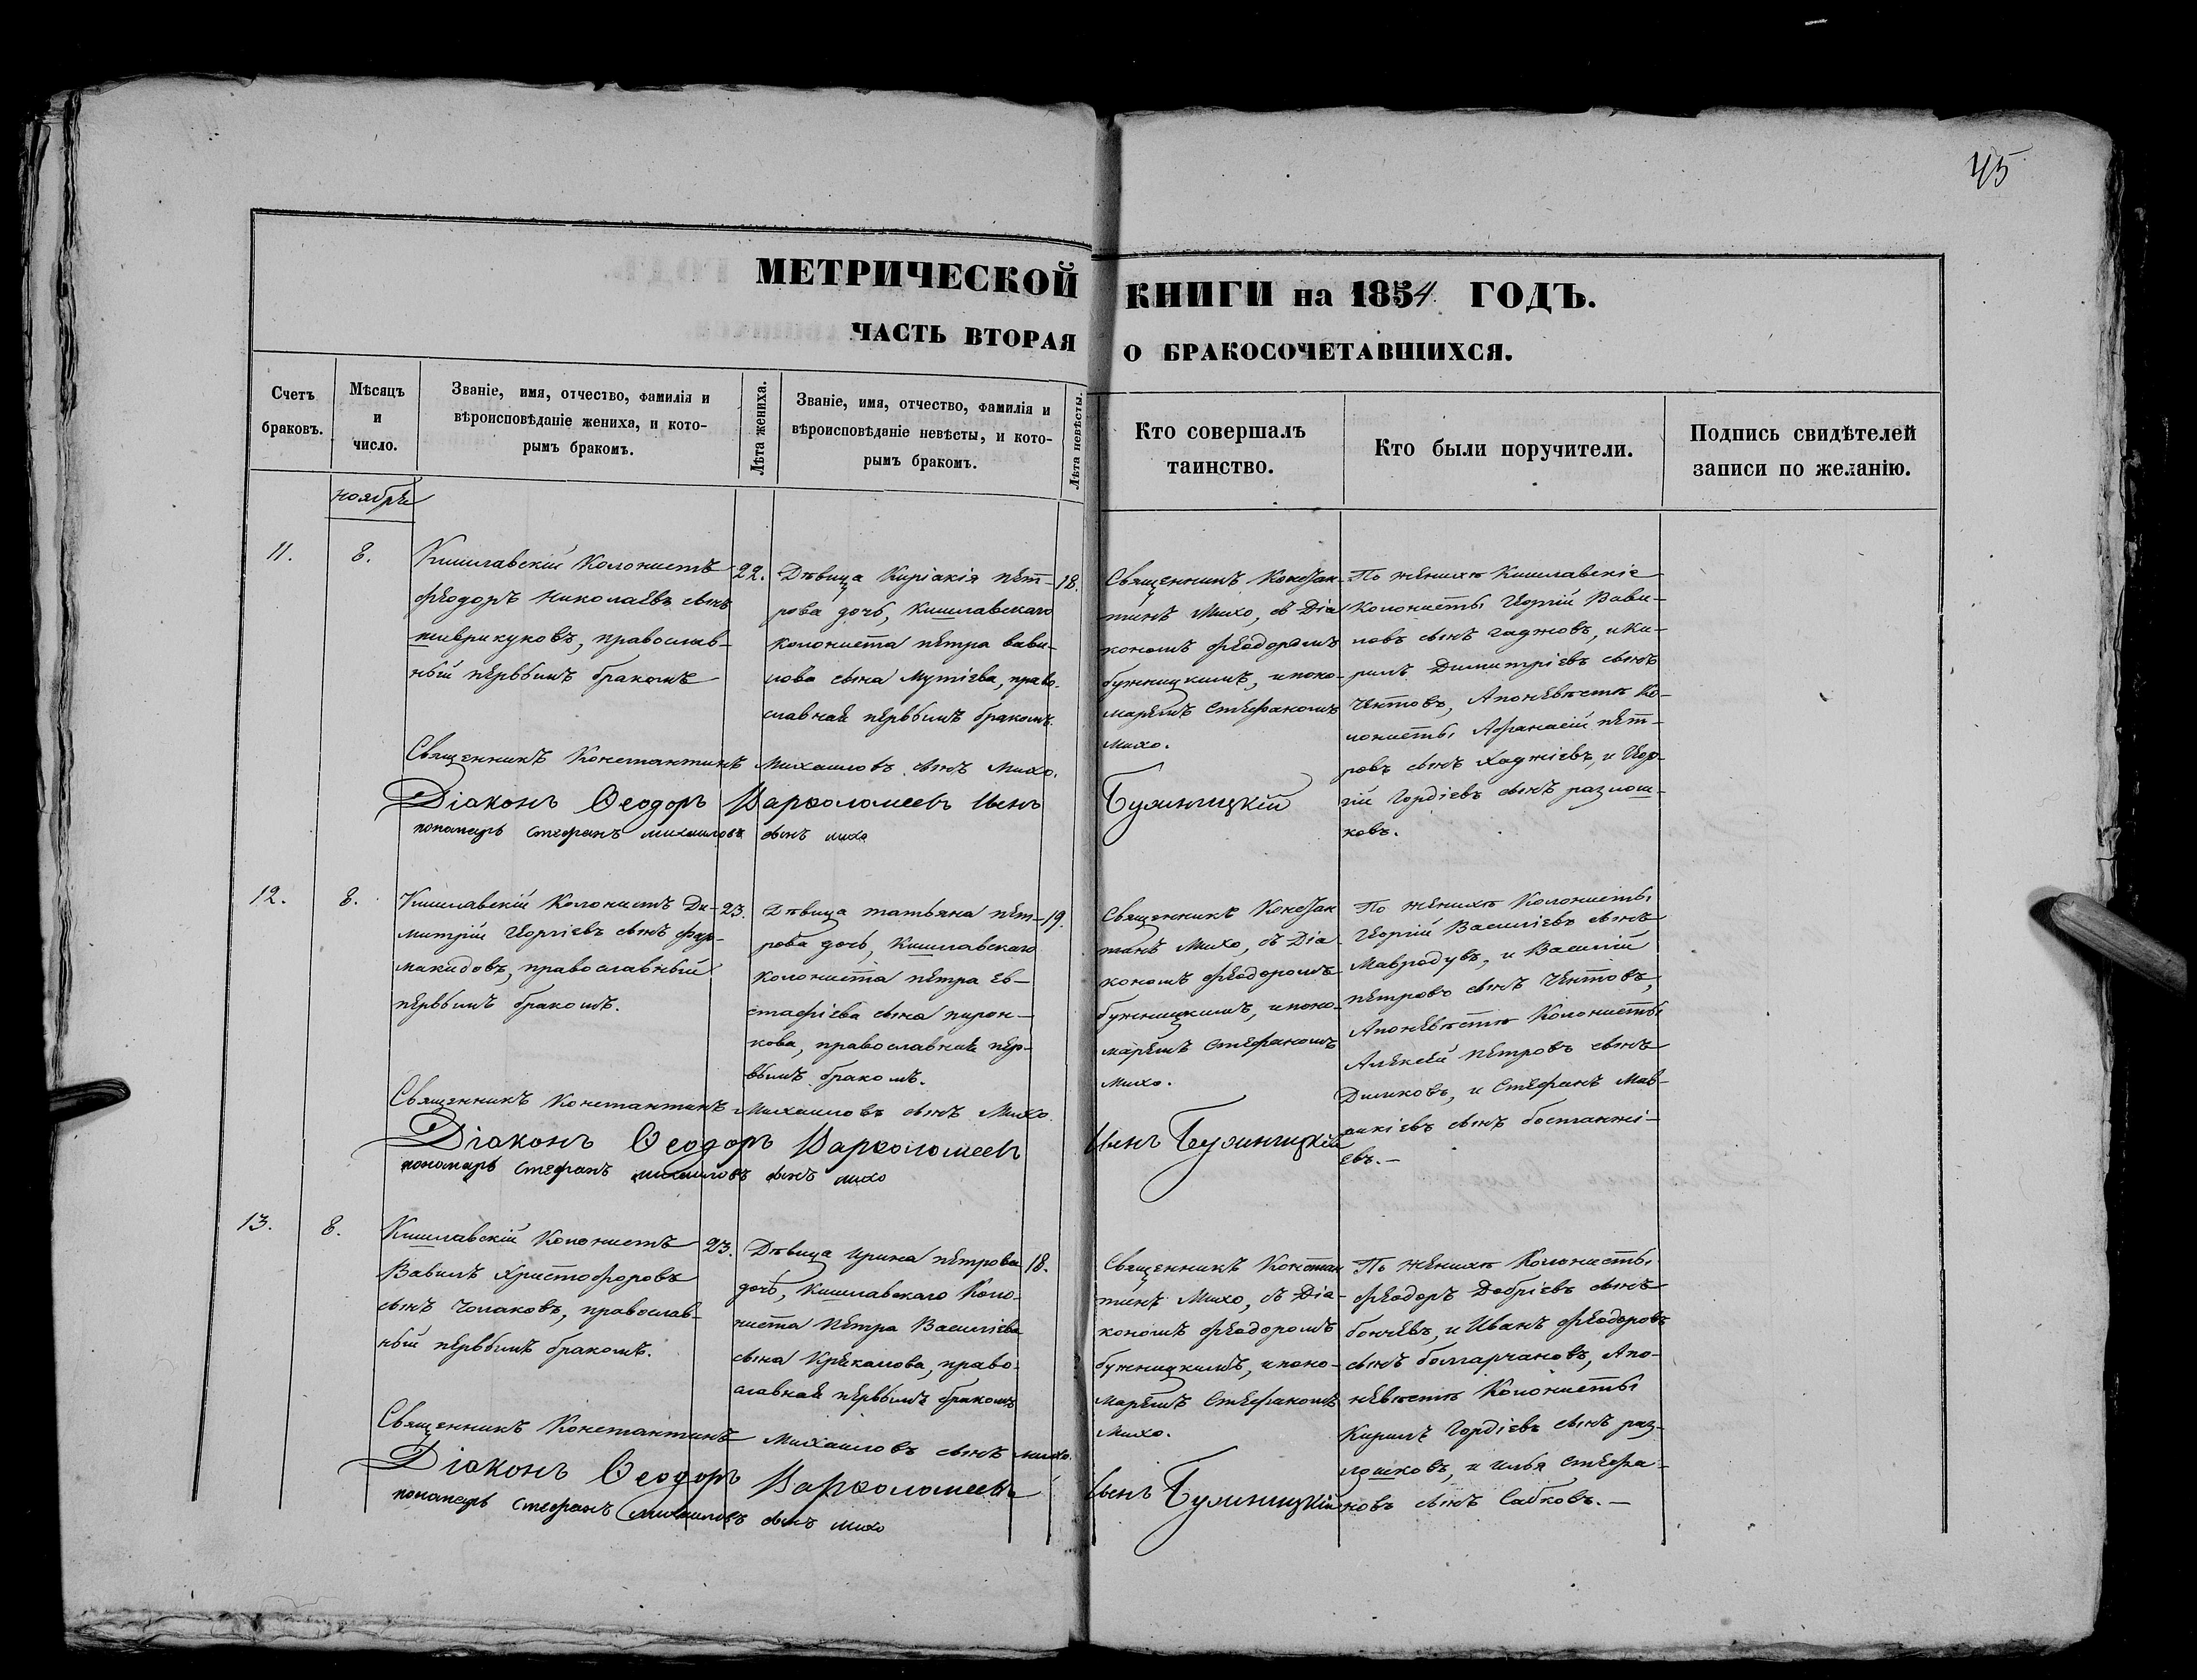 45
МЕТРИЧЕСКОЙ КНИГИ на 1854 ГОДЪ.
ЧАСТЬ ВТОРАЯ О БРАКОСОЧЕТАВШИХСЯ.
Счетъ
браковъ.
Мѣсяцъ
и
число.
Званіе, имя, отчество, фамилія и
вѣроисповѣданіе жениха, и кото-
рымъ бракомъ.
Лѣта жениха.
Званіе, имя, отчество, фамилія и
вѣроисповѣданіе невѣсты, и кото-
рымъ бракомъ.
Лѣта невѣсты.
Кто совершалъ
таинство.
Кто были поручители.
Подпись свидѣтелей
записи по желанію.
ноября
11.
8.
Кишлавскій Колонистъ
Феодоръ Николаевъ сынъ
православ-
ный первымъ бракомъ
22.
Дѣвица Киріакія пет-
рова дочь, Кишлавскаго
колониста петра вави-
лова сына Мутіева, право-
славная первымъ бракомъ.
18.
Священникъ Констан-
тинъ Михо, съ Діа
кономъ Феодоромъ
бужницкимъ, и поно-
маремъ Стефаномъ
михо.
По женихѣ Кишлавскіе
Колонисты Георгій Вави-
ловъ сынъ гаджовъ, и Ки-
рилъ Димитріевъ сынъ
Чентовъ, А по невѣстѣ Ко-
лонисты Афанасій пет-
ровъ сынъ Хаджіевъ, и Геор-
гій Гордіевъ сынъ разлош-
ковъ.
Священникъ Константинъ Михаиловъ сынъ Михо.
Діаконъ Ѳеодоръ Варѳоломеевъ сынъ Бужницкій
пономарь Стефанъ михаиловъ сынъ михо
12.
8.
Кишлавскій Колонистъ Ди-
митрій Георгіевъ сынъ фар-
макидовъ, православный
первымъ бракомъ.
23.
Дѣвица татьяна пет-
рова дочь, Кишлавскаго
колониста петра ев-
стафіева сына пирон-
кова, православная пер-
вымъ бракомъ.
19.
Священникъ Констан
тинъ Михо, съ Діа-
кономъ Феодоромъ
бужницкимъ, и поно-
маремъ Стефаномъ
михо.
По женихѣ Колонисты
Георгій Василіевъ сынъ
Мавродувъ, и Василій
петровъ сынъ Чентовъ,
А по невѣстѣ Колонисты
Алексей петровъ сынъ
Димковъ, и Стефанъ Мав-
рикіевъ сынъ бостанжі-
евъ.—
Священникъ Константинъ Михаиловъ сынъ Михо
Діаконъ Ѳеодоръ Варѳоломеевъ сынъ Бужницкій
пономарь Стефанъ михаиловъ сынъ михо
13.
8.
Кишлавскій Колонистъ
Вавилъ Христофоровъ
сынъ Чолаковъ, православ-
ный первымъ бракомъ.
23.
Дѣвица Ирина петрова
дочь, Кишлавскаго Коло-
ниста Петра Василіева
сына Крекалова, право-
славная первымъ бракомъ
18.
Священникъ Констан
тинъ Михо, съ Діа-
кономъ Феодоромъ
бужницкимъ, и поно-
маремъ Стефаномъ
Михо.
По женихѣ Колонисты
Феодоръ Добріевъ сынъ
бончевъ, и Иванъ Феодоровъ
сынъ болгарчановъ, А по
невѣстѣ Колонисты
Кирилъ Гордіевъ сынъ раз-
лошковъ, и илья Стефа-
новъ сынъ Сабковъ.—
Священникъ Константинъ Михаиловъ сынъ михо.
Діаконъ Ѳеодоръ Варѳоломеевъ сынъ Бужницкій
пономарь Стефанъ михаиловъ сынъ михо